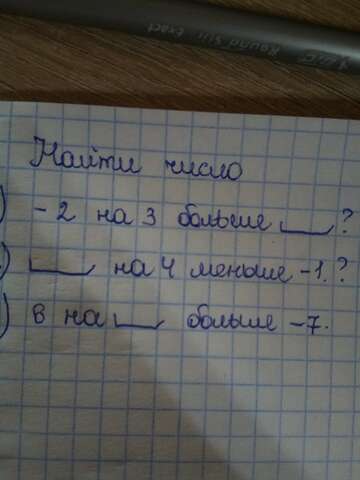 Найти число
) -2 на 3 больше ___?
) ___ на 4 меньше -1.?
) 8 на ___ больше -7.